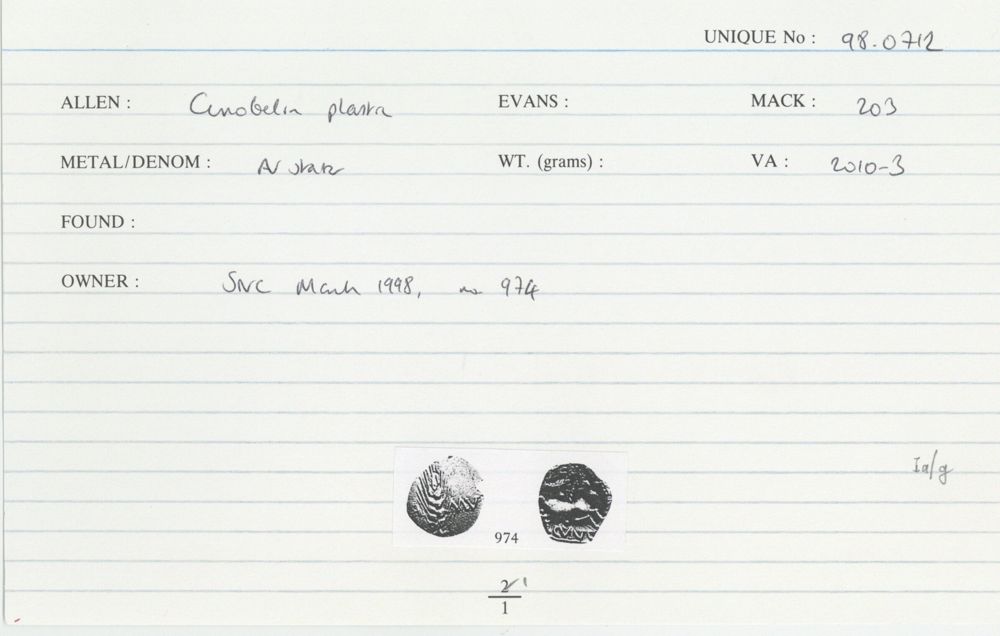 UNIQUE No : 98.0712
ALLEN : Cunobelin plastic EVANS : MACK : 203
METAL/DENOM : AV stater WT. (grams) : VA : 2010-3
FOUND :
OWNER : SNC March 1998, no 974
Ia/g
974
2 1
1